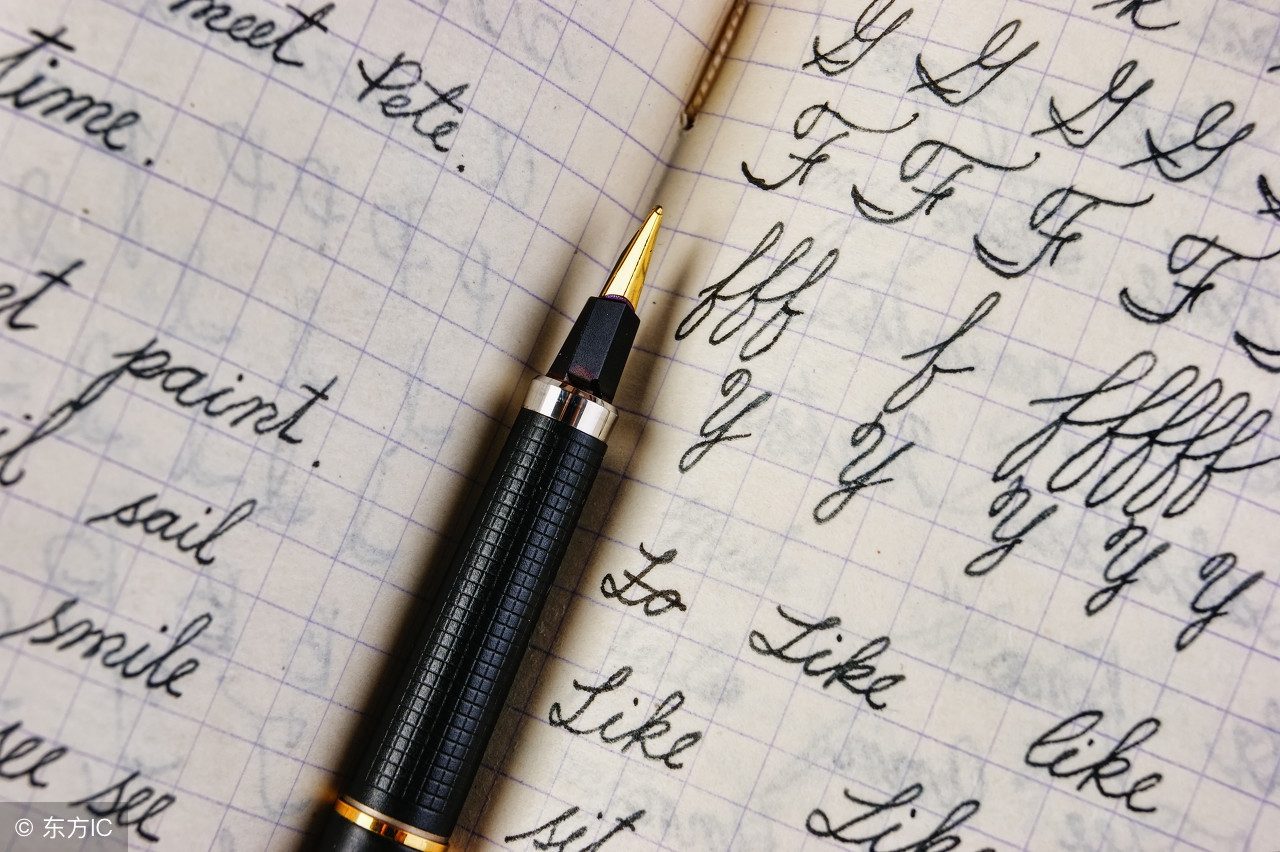 meet Pete.
time.
et paint.
sail
smile
see see
G G G G
F F F F
fff f fffff
Y Y Y Y Y
Like like
Like Like
sit
© 东方IC